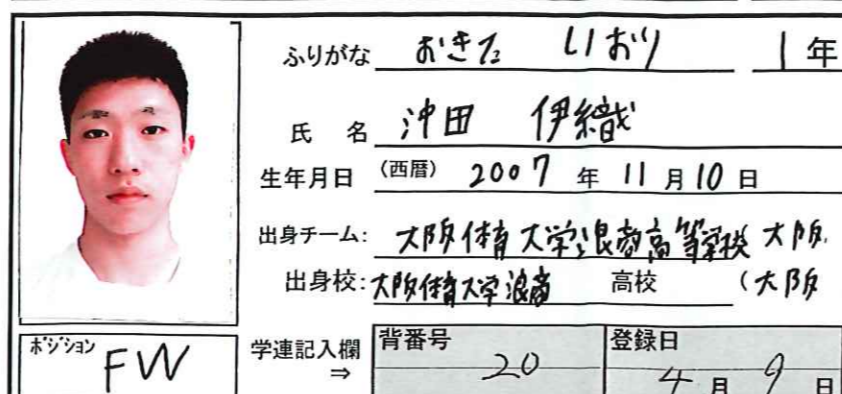 ふりがな おきた いおり 1年
氏 名 沖田 伊織
生年月日 (西暦) 2007 年 11 月 10 日
出身チーム: 大阪体育大学浪商高等学校 大阪
出身校: 大阪体育大学浪商 高校 (大阪
ポジション FW
学連記入欄 ⇒
背番号 20
登録日 4 月 9 日